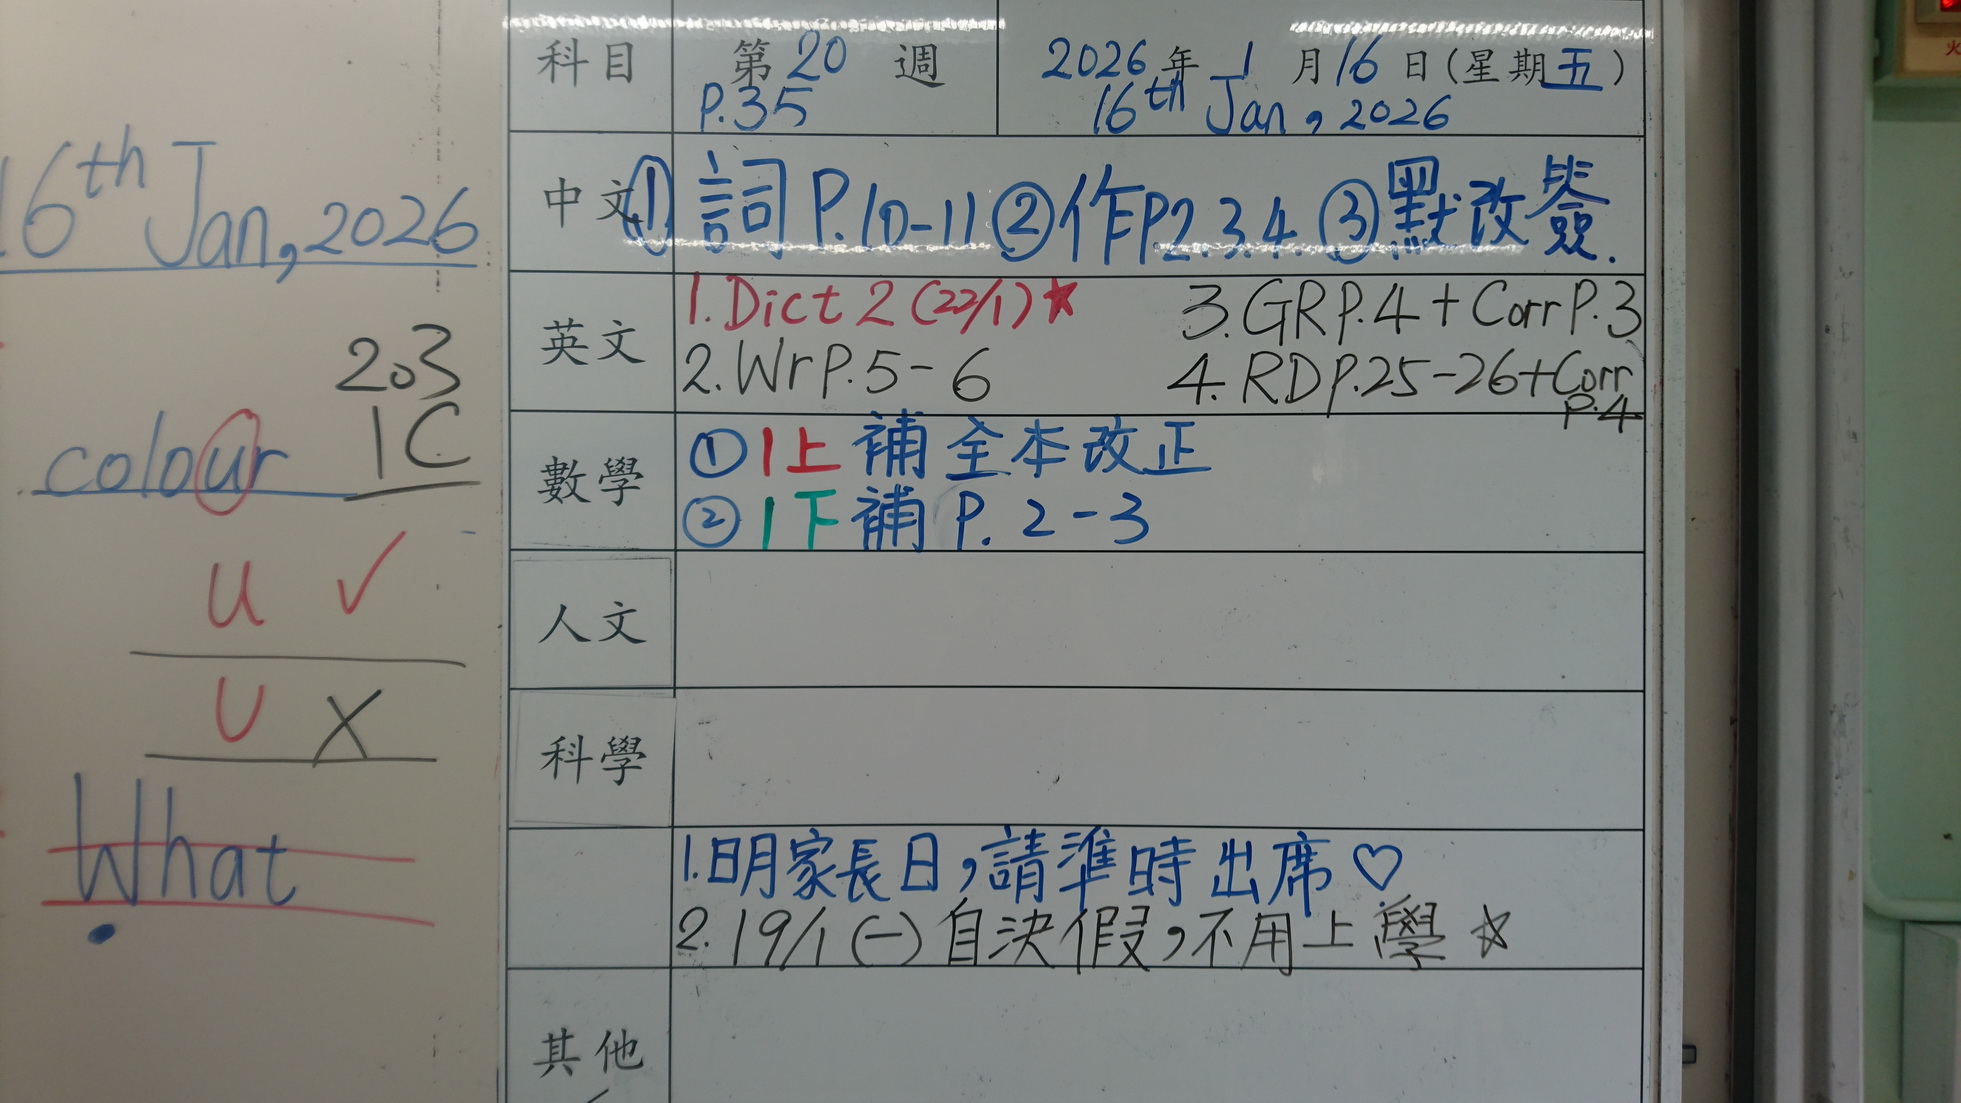 16th Jan, 2026
203
1C
colour
u ✓
U X
What
科目 第 20 週 2026 年 1 月 16 日 (星期五)
P.35 16th Jan, 2026
中文 ① 詞 P.10-11 ② 作 P2.3.4. ③ 默改簽.
英文 1. Dict 2 (22/1) ★ 3. GR P.4 + Corr P.3
2. Wr P.5-6 4. RD P.25-26 + Corr
P.4
數學 ① 1上 補 全本改正
② 1下 補 P. 2-3
人文
科學
1. 明家長日,請準時出席 ♡
2. 19/1 (一) 自決假,不用上學 ☆
其他